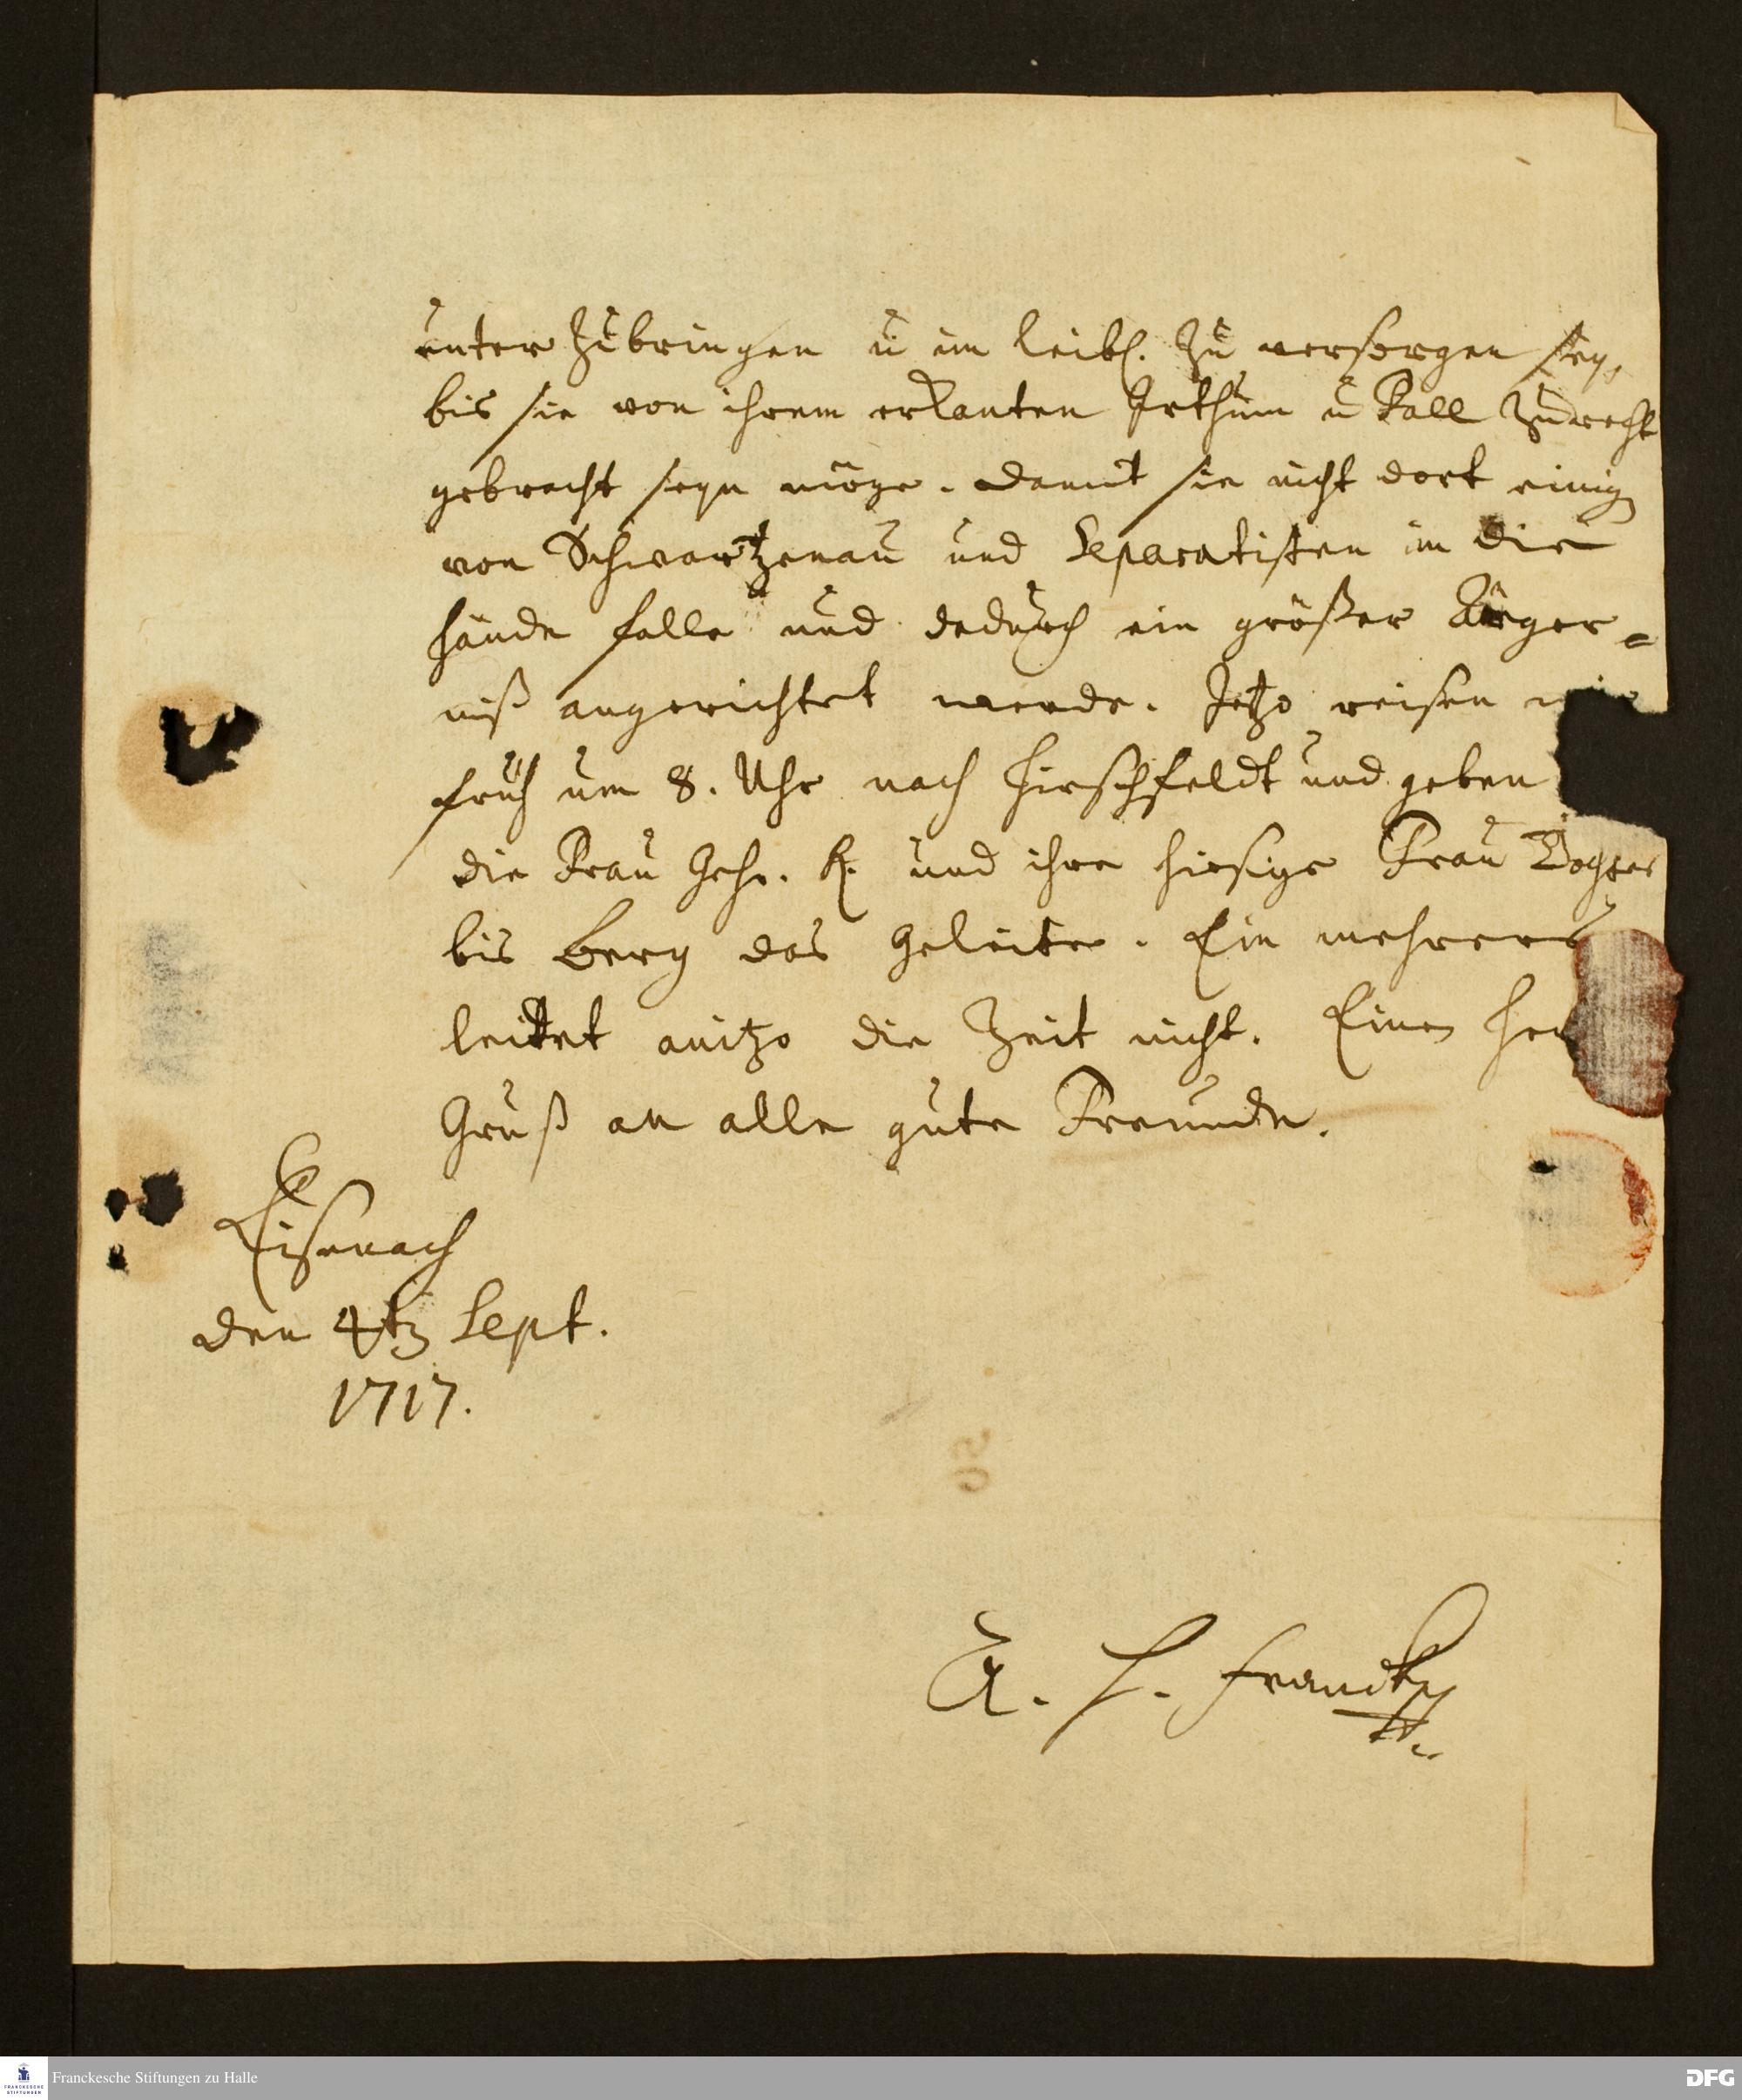 unter zubringen u im leibl. zu versorgen sey,
bis sie von ihrem erkanten Irthum u Fall zu recht
gebracht seyn möge. damit sie nicht dort einig
von Schwartzenau und Separatisten in die
hände falle und dadurch ein größer Ärger-
niß angerichtet werde. Jetzo reisen wir
früh um 8. Uhr nach Hirschfeldt und geben
die Frau Geh. R. und ihre hiesige Frau Tochter
bis Berg das Geleite. Ein mehrers
leidet anitzo die Zeit nicht. Einen
Gruß an alle gute Freunde.
Eisenach
den 4t Sept.
1717.
A. H. Francke
Franckesche Stiftungen zu Halle
FRANCKESCHE
STIFTUNGEN
DFG